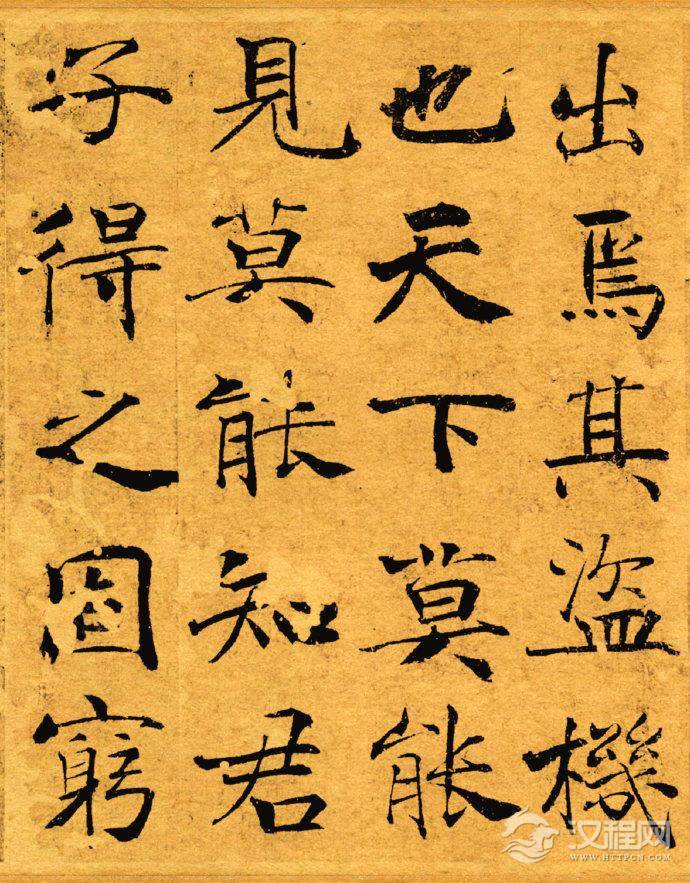 出焉其盜機
也天下莫能
見莫能知君
子得之固窮
汉程网
WWW.HTTPCN.COM